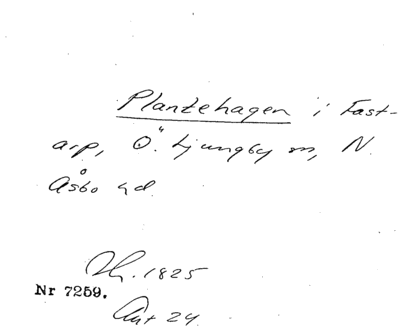 Plantehagen i Fast-
arp, Ö. Ljungby sn, N.
Åsbo hd
1825
Nr 7259.
Akt 24